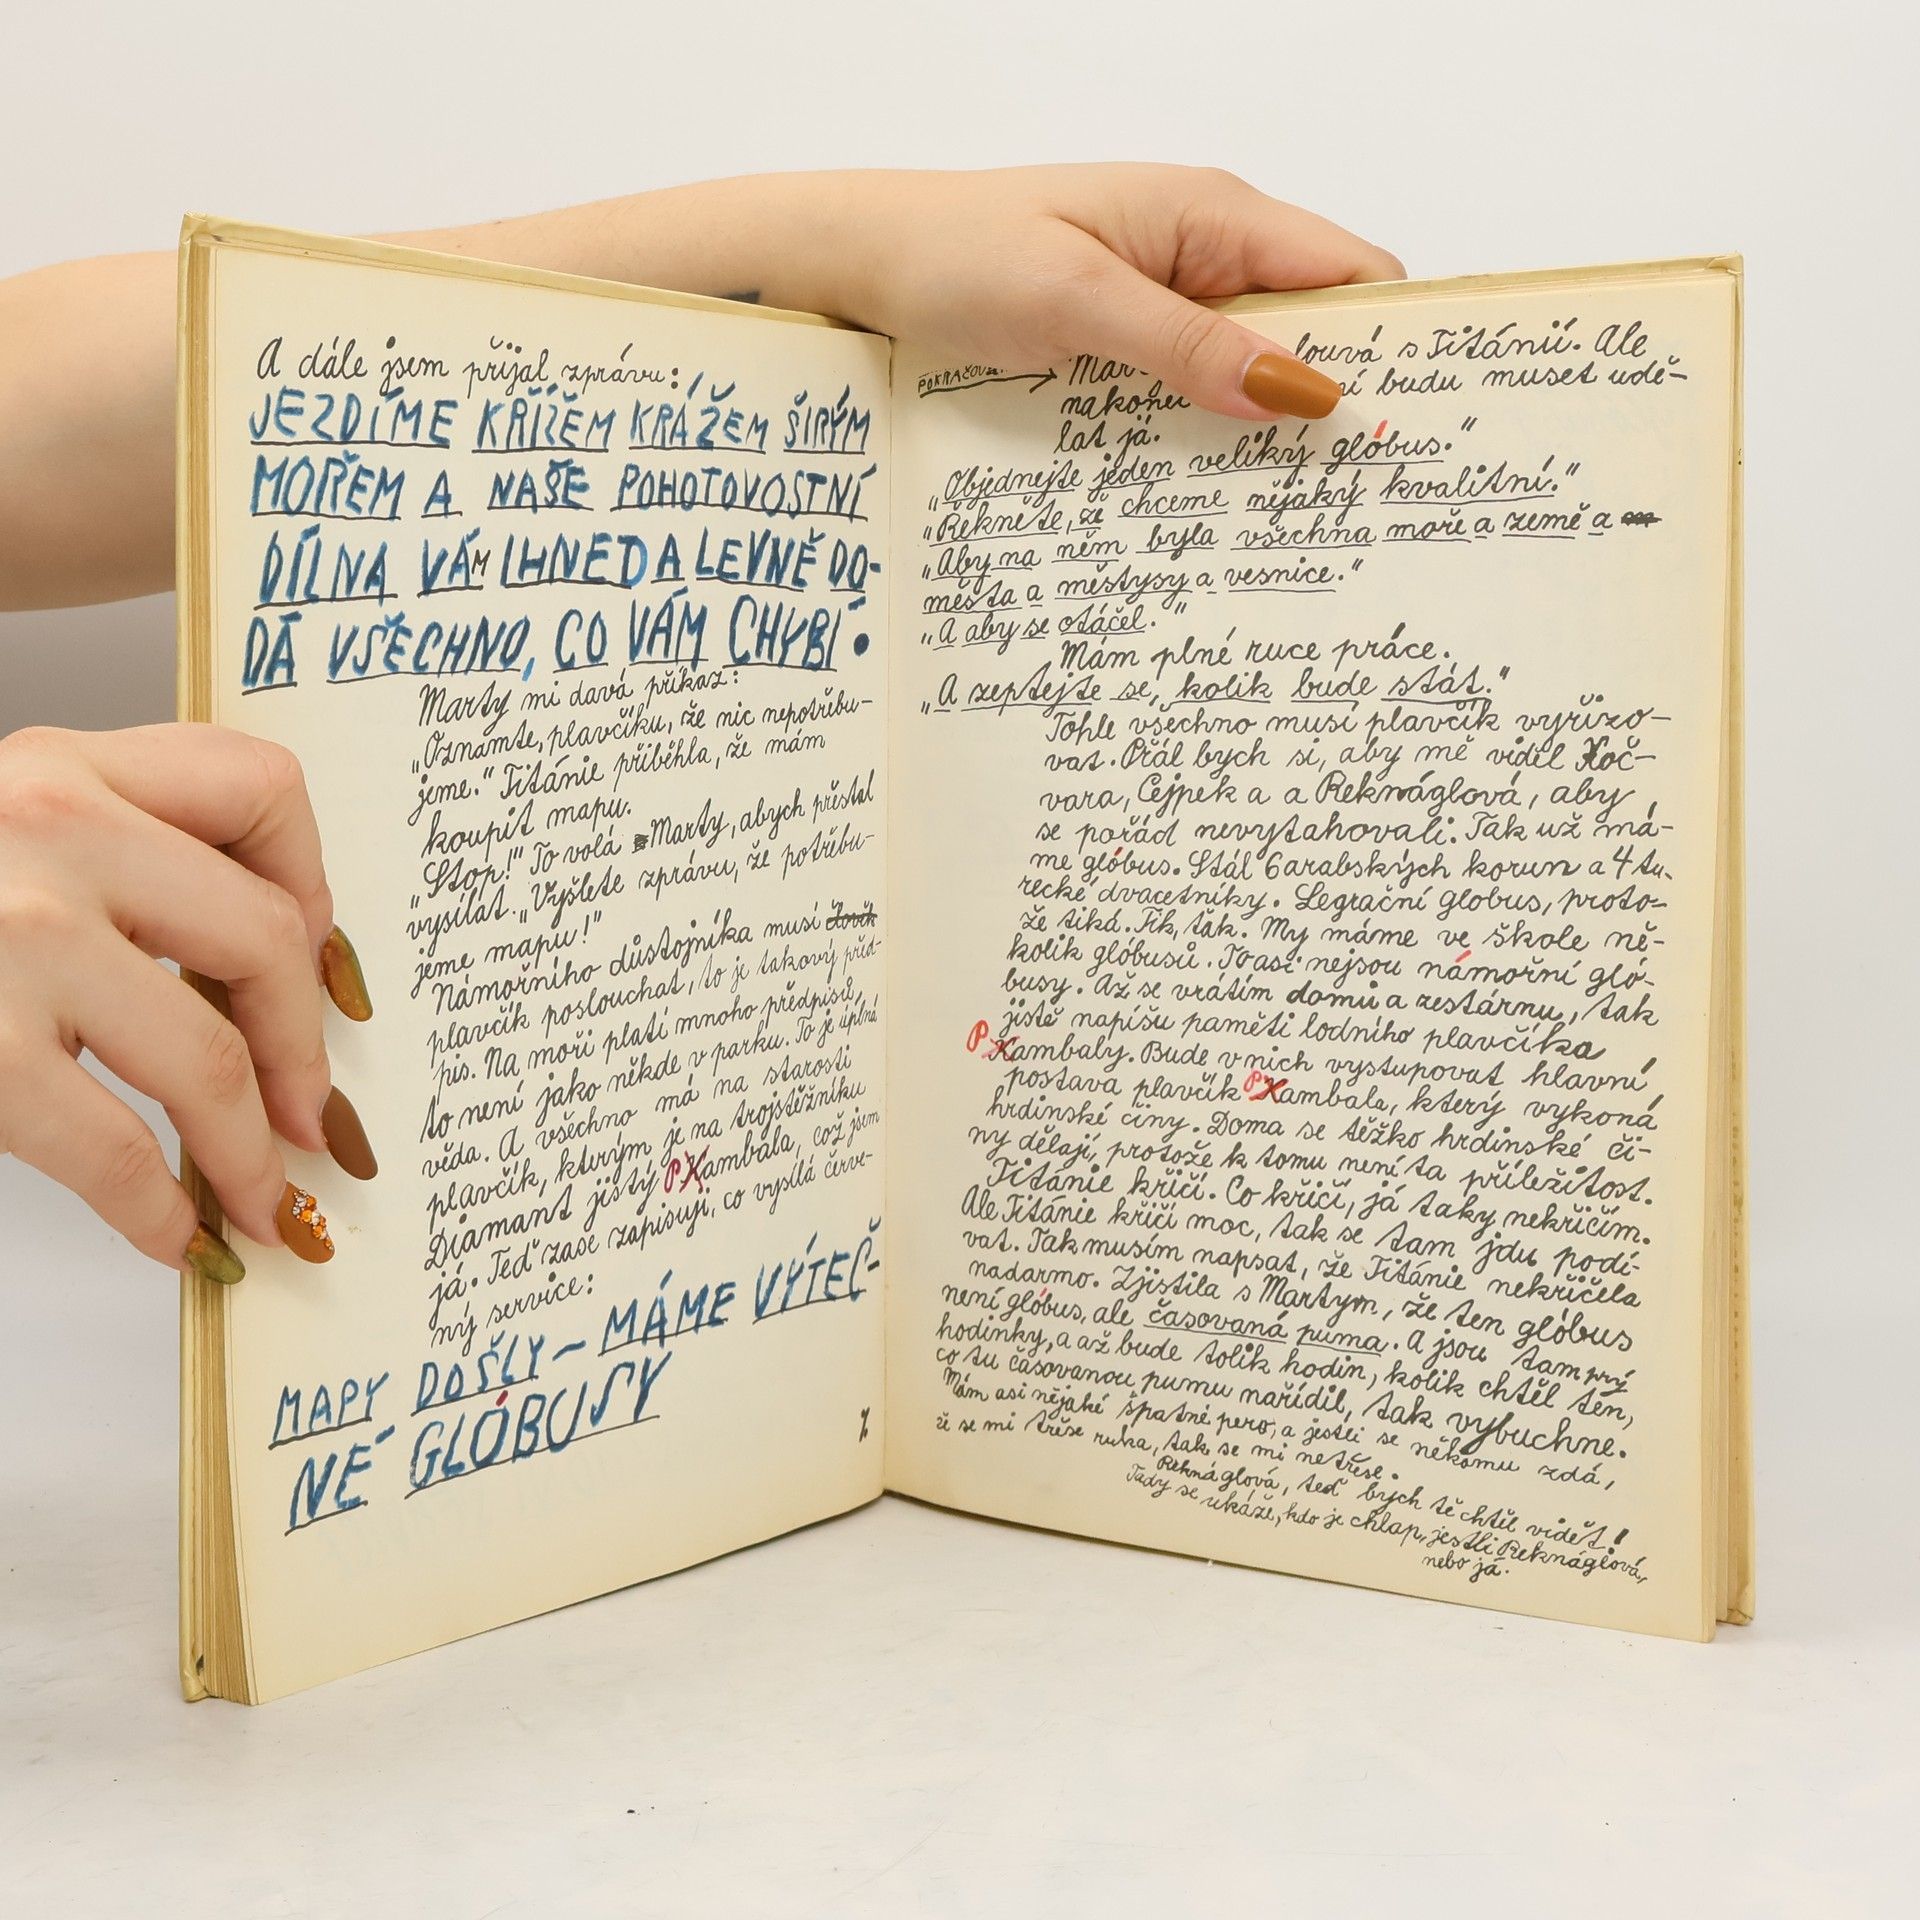 A dále jsem přijal zprávu:
JEZDÍME KŘÍŽEM KRÁŽEM ŠIRÝM
MOŘEM A NAŠE POHOTOVOSTNÍ
DÍLNA VÁM IHNED A LEVNĚ DO-
DÁ VŠECHNO, CO VÁM CHYBÍ.
Marty mi davá příkaz:
„Oznamte, plavčíku, že nic nepotřebu-
jeme." Titánie přiběhla, že mám
koupit mapu.
„Stop!" To volá Marty, abych přestal
vysílat. „Vyšlete zprávu, že potřebu-
jeme mapu!"
Námořního důstojníka musí
plavčík poslouchat, to je takový před-
pis. Na moři platí mnoho předpisů,
to není jako někde v parku. To je úplná
věda. A všechno má na starosti
plavčík, kterým je na trojstěžníku
Diamant jistý PKambala, což jsem
já. Teď zase zapisuji, co vysílá červe-
ný service:
MAPY DOŠLY – MÁME VÝTEČ-
NÉ GLÓBUSY
%
POKRAČOV
Mar louvá s Titánií. Ale
nakonec ní budu muset udě-
lat já.
„Objednejte jeden veliký glóbus."
„Řekněte, že chceme nějaký kvalitní."
„Aby na něm byla všechna moře a země a
města a městysy a vesnice."
„A aby se otáčel."
Mám plné ruce práce.
„A zeptejte se, kolik bude stát."
Tohle všechno musí plavčík vyřizo-
vat. Přál bych si, aby mě viděl Koč-
vara, Cejpek a a Reknáglová, aby
se pořád nevytahovali. Tak už má-
me glóbus. Stál 6 arabských korun a 4 tu-
recké dvacetníky. Legrační globus, proto-
že tiká. Tik, ťak. My máme ve škole ně-
kolik glóbusů. To asi nejsou námořní gló-
busy. Až se vrátím domů a zestárnu, tak
jistě napíšu paměti lodního plavčíka
PKambaly. Bude v nich vystupovat hlavní
postava plavčík PKambala, který vykoná
hrdinské činy. Doma se těžko hrdinské či-
ny dělají, protože k tomu není ta příležitost.
Titánie křičí. Co křičí, já taky nekřičím.
Ale Titánie křičí moc, tak se tam jdu podí-
vat. Tak musím napsat, že Titánie nekřičela
nadarmo. Zjistila s Martym, že ten glóbus
není glóbus, ale časovaná puma. A jsou tam prý
hodinky, a až bude tolik hodin, kolik chtěl ten,
co tu časovanou pumu nařídil, tak vybuchne.
Mám asi nějaké špatné pero, a jestli se někomu zdá,
že se mi třese ruka, tak se mi netřese.
Reknáglová, teď bych tě chtěl vidět!
Tady se ukáže, kdo je chlap, jestli Reknáglová,
nebo já.